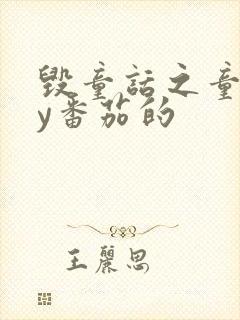 毁童话之童
y番茄的
王丽思